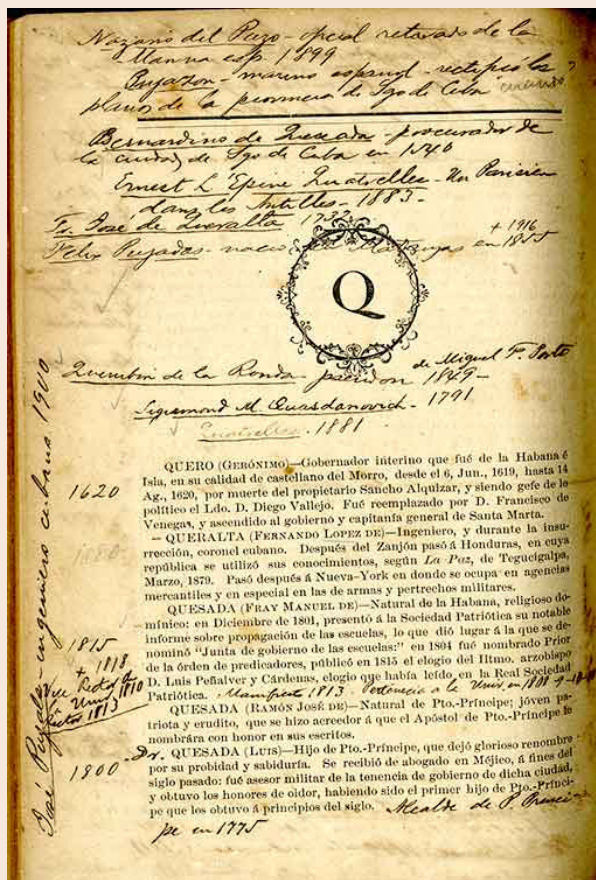 Nazario del Pazo - oficial retirado de la
Marina esp. 1899
Pujazon - marino español - rectificó los
planos de la provincia de Sgo de Cuba
Bernardino de Quesada - procurador de
la ciudad de Sgo de Cuba en 1540
Ernest L'Epine Quatrelles - Un Parisien
dans les Antilles - 1883 -
Fr. José de 1732
+ 1916
Felix Pujadas - nació en Matanzas en 1855
Q
Querubin de la Ronda - pseudon de Miguel F. Porto
1849 -
Sigismond M. Quasdanovich - 1791
Quatrelles - 1881
QUERO (GERÓNIMO)—Gobernador interino que fué de la Habana é
Isla, en su calidad de castellano del Morro, desde el 6, Jun., 1619, hasta 14
1620
Ag., 1620, por muerte del propietario Sancho Alquizar, y siendo gefe de lo
político el Ldo. D. Diego Vallejo. Fué reemplazado por D. Francisco de
Venegas, y ascendido al gobierno y capitanía general de Santa Marta.
— QUERALTA (FERNANDO LOPEZ DE)—Ingeniero, y durante la insu-
rrección, coronel cubano. Después del Zanjón pasó á Honduras, en cuya
república se utilizó sus conocimientos, según La Paz, de Tegucigalpa,
Marzo, 1879. Pasó después á Nueva-York en donde se ocupa en agencias
mercantiles y en especial en las de armas y pertrechos militares.
QUESADA (FRAY MANUEL DE)—Natural de la Habana, religioso do-
mínico: en Diciembre de 1801, presentó á la Sociedad Patriótica su notable
1815
informe sobre propagación de las escuelas, lo que dió lugar á la que se de-
+ 1818
nominó "Junta de gobierno de las escuelas:" en 1804 fué nombrado Prior
Fue Rector de
de la órden de predicadores, publicó en 1815 el elogio del Iltmo. arzobispo
la Univ. 1810
D. Luis Peñalver y Cárdenas, elogio que había leído en la Real Sociedad
Rector 1813
Patriótica. Manifiesto 1813. Pertenecia a la Univ. en 1808
QUESADA (RAMÓN JOSÉ DE)—Natural de Pto.-Príncipe; jóven pa-
triota y erudito, que se hizo acreedor á que el Apóstol de Pto.-Príncipe le
nombrára con honor en sus escritos.
1800 - Dr. QUESADA (LUIS)—Hijo de Pto.-Príncipe, que dejó glorioso renombre
por su probidad y sabiduría. Se recibió de abogado en Méjico, á fines del
siglo pasado: fué asesor militar de la tenencia de gobierno de dicha ciudad,
y obtuvo los honores de oidor, habiendo sido el primer hijo de Pto.-Prínci-
pe que los obtuvo á principios del siglo. Alcalde de P. Princi
pe en 1775
José Pujals - ingeniero cubano 1900